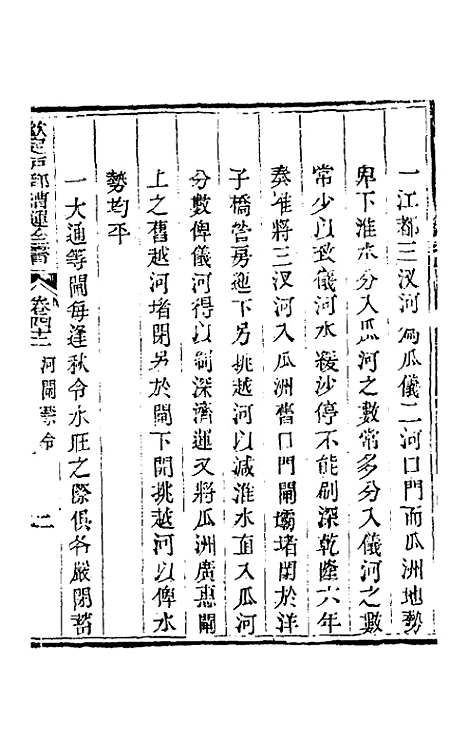 一江都三汊河為瓜儀二河口門而瓜洲地勢
卑下淮水分入瓜河之數常多分入儀河之數
常少以致儀河水緩沙停不能刷深乾隆六年
奏准將三汊河入瓜洲舊口門閘壩堵閉於洋
子橋營房迤下另挑越河以減淮水面入瓜河
分數俾儀河得以制深濟運又將瓜洲廣惠閘
上之舊越河堵閉另於閘下開挑越河以俾水
勢均平
一大通等閘每逢秋令水旺之際俱各嚴閉蓄
欽定戶部漕運全書 卷四十二 河閘禁令 二